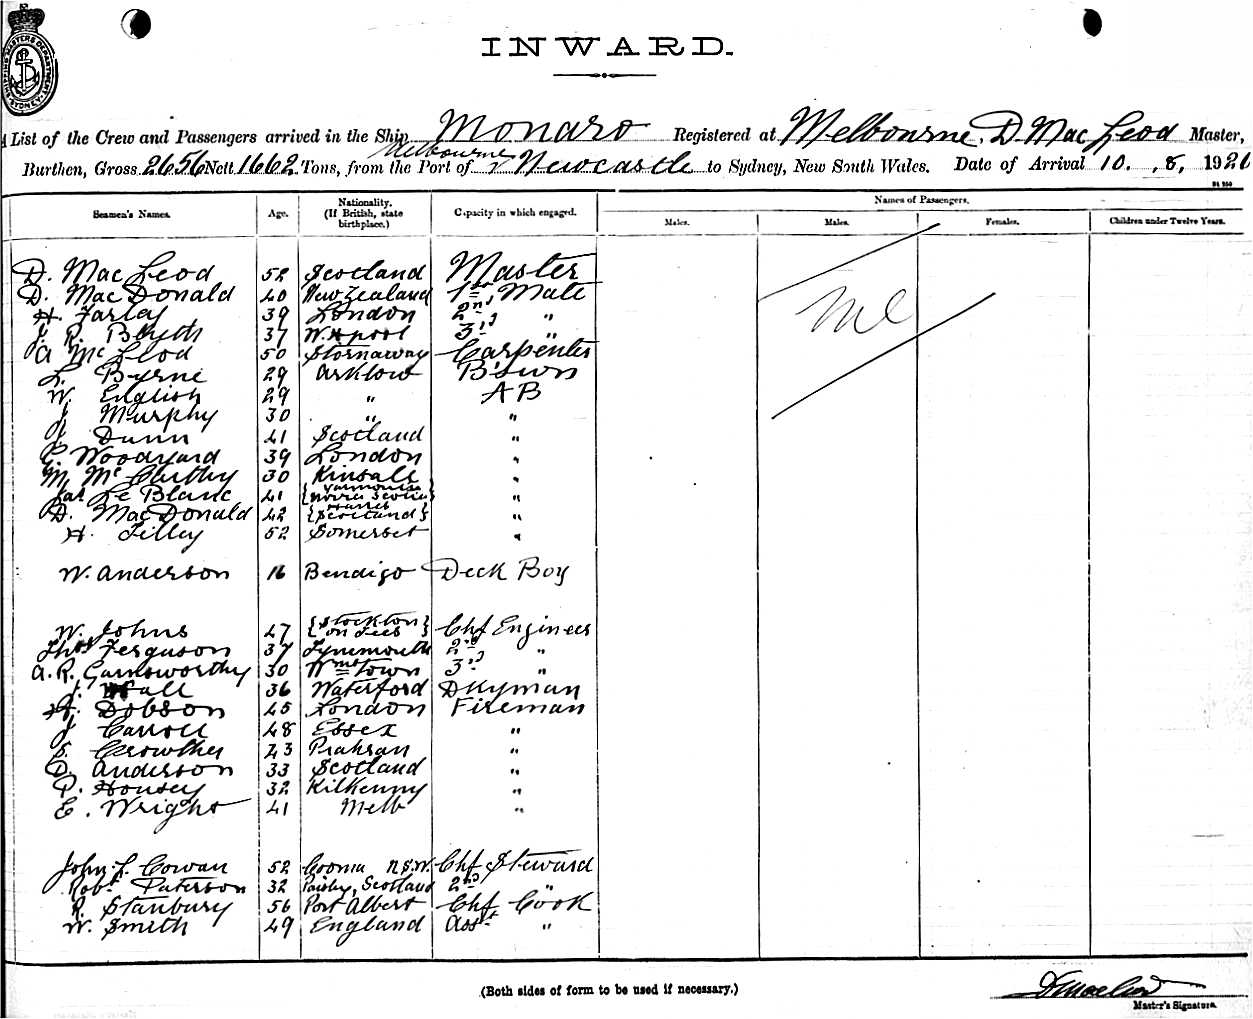 SHIPPING MASTERS DEPARTMENT SYDNEY
INWARD.
A List of the Crew and Passengers arrived in the Ship Monaro Registered at Melbourne, D. Mac Leod Master,
Burthen, Gross 2656 Nett 1662 Tons, from the Port of Melbourne & Newcastle to Sydney, New South Wales. Date of Arrival 10. 8, 192
Seamen's Names. Age. Nationality. (If British, state birthplace.) Capacity in which engaged. Names of Passengers.
Males. Males. Females. Children under Twelve Years.
D. Mac Leod 52 Scotland Master
D. Mac Donald 40 New Zealand 1st Mate
H. Farley 39 London 2nd "
J. R. Blyth 37 W. H pool 3rd "
A Mc Leod 50 Stornaway Carpenter
L. Byrne 29 Arklow B'swn
W. English 29 " AB
J Murphy 30 " "
J Dunn 41 Scotland "
Woodyard 39 London "
M. Mc Carthy 30 Kinsale "
Jas Le Blanc 41 {Yarmouth Nova Scotia} "
D. Mac Donald 42 {Harris Scotland} "
H. Tilley 52 Somerset "
W. Anderson 16 Bendigo Deck Boy
W. Johns 47 {Stockton on Tees} Chf Engineer
Thos Ferguson 37 Tynemouth 2nd "
A. R. Gainsworthy 30 Wms Town 3rd "
J. Wall 36 Waterford Dkyman
H. Dobson 45 London Fireman
J Carroll 48 Essex "
S. Crowther 23 Prahran "
D. Anderson 33 Scotland "
P. Housey 32 Kilkenny "
E. Wright 41 Melb "
John L. Cowan 52 Cooma N.S.W. Chf Steward
Robt Paterson 32 Paisley, Scotland 2nd "
R. Stanbury 56 Port Albert Chf Cook
W. Smith 49 England Asst "
(Both sides of form to be used if necessary.)
D MacLeod
Master's Signature.